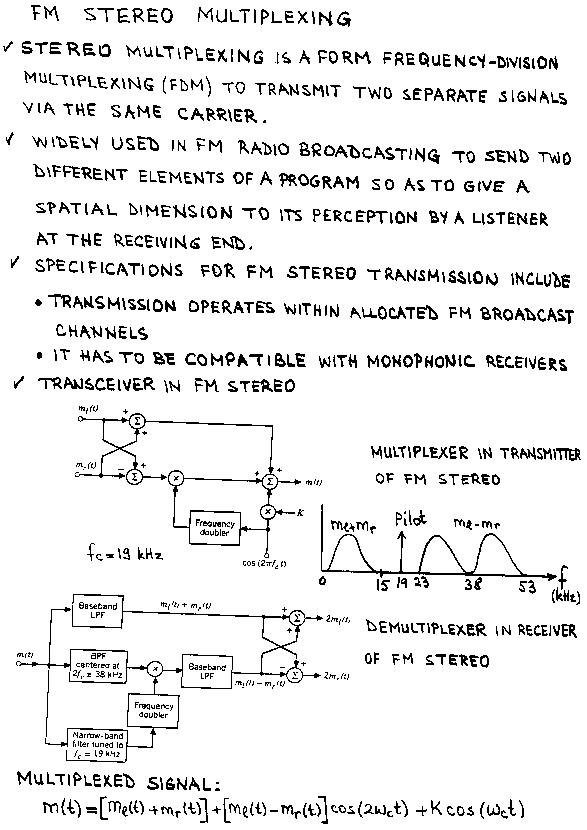 FM STEREO MULTIPLEXING
✓ STEREO MULTIPLEXING IS A FORM FREQUENCY-DIVISION
MULTIPLEXING (FDM) TO TRANSMIT TWO SEPARATE SIGNALS
VIA THE SAME CARRIER.
✓ WIDELY USED IN FM RADIO BROADCASTING TO SEND TWO
DIFFERENT ELEMENTS OF A PROGRAM SO AS TO GIVE A
SPATIAL DIMENSION TO ITS PERCEPTION BY A LISTENER
AT THE RECEIVING END.
✓ SPECIFICATIONS FOR FM STEREO TRANSMISSION INCLUDE
• TRANSMISSION OPERATES WITHIN ALLOCATED FM BROADCAST
CHANNELS
• IT HAS TO BE COMPATIBLE WITH MONOPHONIC RECEIVERS
✓ TRANSCEIVER IN FM STEREO
m_l(t)
+
Σ
+
+
m_r(t)
−
+
Σ
×
+
+
Σ
m(t)
+
×
K
Frequency
doubler
cos (2πf_c t)
f_c = 19 kHz
MULTIPLEXER IN TRANSMITTER
OF FM STEREO
m_l+m_r
Pilot
m_l-m_r
0 15 19 23 38 53
f
(kHz)
Baseband
LPF
m_l(t) + m_r(t)
+
Σ
2m_l(t)
+
m(t)
BPF
centered at
2f_c = 38 kHz
×
Baseband
LPF
m_l(t) − m_r(t)
+
−
Σ
2m_r(t)
Frequency
doubler
Narrow-band
filter tuned to
f_c = 19 kHz
DEMULTIPLEXER IN RECEIVER
OF FM STEREO
MULTIPLEXED SIGNAL:
m(t) = [m_l(t) + m_r(t)] + [m_l(t) - m_r(t)] cos(2ω_c t) + K cos (ω_c t)